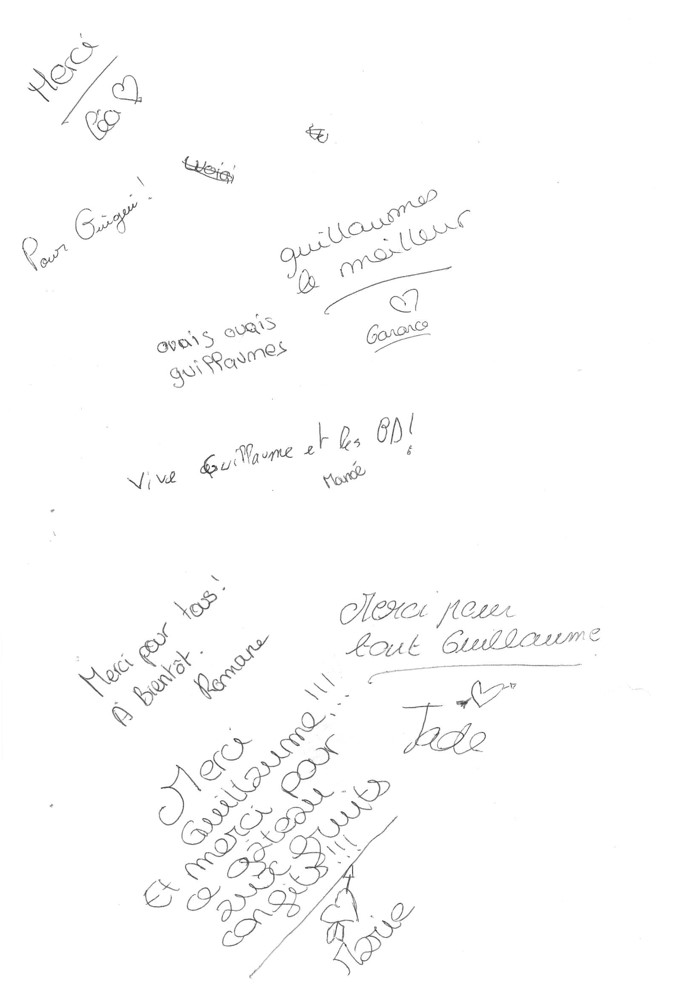 Merci
Léa
Pour
guillaumes
le meilleur
Garance
ovais ovais
guillaumes
Vive Guillaume et les BD!
Merci pour tous!
À Bientôt.
Romane
Merci pour
tout Guillaume
Jade
Merci
Guillaume!!!
Et merci pour
ce gâteau
aux fruits
confits!!!
Marie